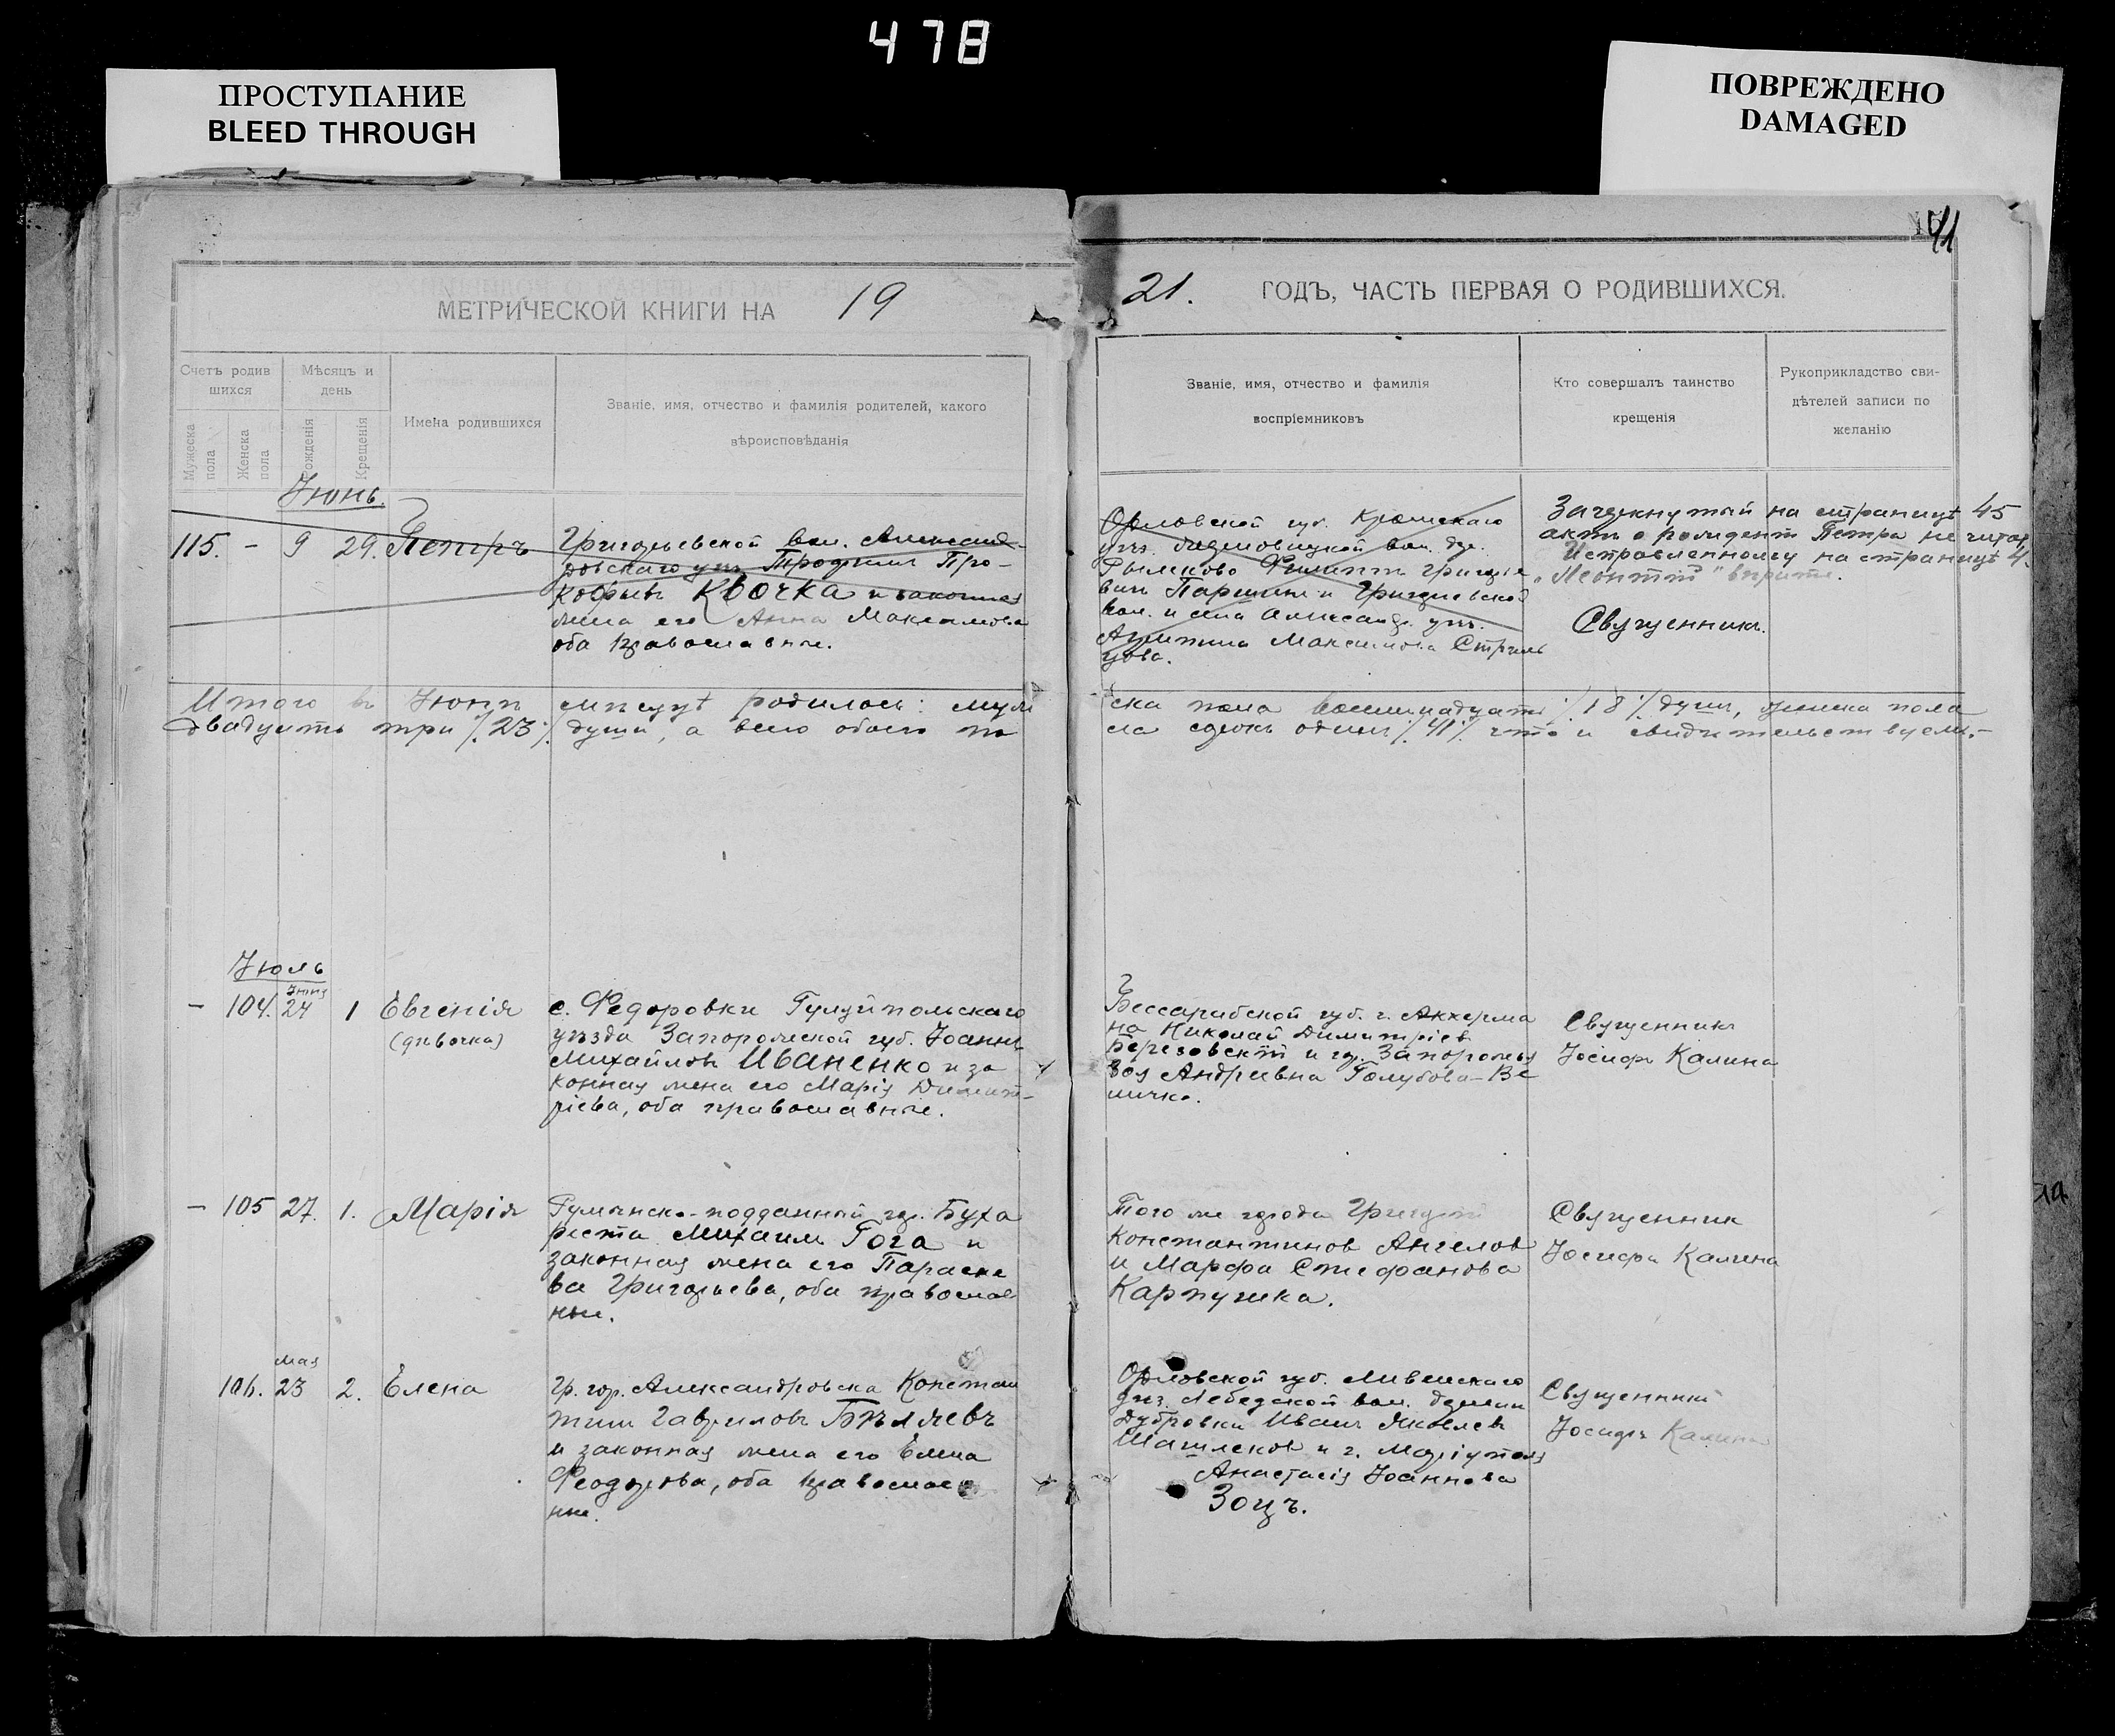 478
ПРОСТУПАНИЕ
BLEED THROUGH
ПОВРЕЖДЕНО
DAMAGED
41
МЕТРИЧЕСКОЙ КНИГИ НА 19
21. ГОДЪ, ЧАСТЬ ПЕРВАЯ О РОДИВШИХСЯ.
Счетъ родив
шихся
Мѣсяцъ и
день
Мужеска
пола
Женска
пола
Рожденія
Крещенія
Имена родившихся
Званіе, имя, отчество и фамилія родителей, какого
вѣроисповѣданія
Званіе, имя, отчество и фамилія
воспріемниковъ
Кто совершалъ таинство
крещенія
Рукоприкладство сви-
дѣтелей записи по
желанію
Іюнь.
115. - 9 29. Петръ
Григорьевской вол. Александ-
ровскаго уѣз. Трофим Про-
кофьевъ Квочка и законная
жена его Анна Максимова
оба православные.
Орловской губ. Кромскаго
уѣз.
Филиппъ Григорье
вич Паршин и Григорьевской
вол. и села Александр. уѣз.
Максимова Стриль
цова.
Зачеркнутый на страницѣ 45
актъ о рожденіи Петра не читать
Исправленному на страницѣ 4.
„Леонтій" вѣрить.
Священникъ.
Итого въ Іюнѣ мѣсяцѣ родилось: муж
ска пола восемнадцать /18/ душъ, женска пола
двадцать три /.23./ души, а всего обоего по
ла сорокъ одинъ /.41/. что и свидѣтельствуемъ.-
Іюль
Іюня
- 104. 24 1 Евгенія
(дѣвочка)
с. Федоровки Гуляйпольскаго
уѣзда Запорожской губ. Іоаннъ
Михайловъ Иваненко и за
конная жена его Марія Димит-
ріева, оба православные.
Бессарабской губ. г. Аккерма
на Николай Димитріев
Березовскій и гр. Запорожья
Зоя Андреевна Голубова-Ве
личко.
Священникъ
Іосифъ Калина
- 105 27. 1. Марія
Румынско-подданный гор. Буха
реста Михаилъ Гога и
законная жена его Параске
ва Григорьева, оба православ
ные.
Того же города Григорій
Константинов Ангелов
и Марфа Стефанова
Карпушка.
Священник
Іосифъ Калина
мая
106. 23 2. Елена
Гр. гор. Александровска Констан
тин Гавриловъ Бѣляевъ
и законная жена его Елена
Феодорова, оба православ
ные.
Орловской губ. Ливенскаго
уѣз. Лебедской вол. деревни
Дубровки Иванъ Яковлевъ
и г. Маріуполя
Анастасія Іоаннова
Зоцъ.
Священник
Іосифъ Калина